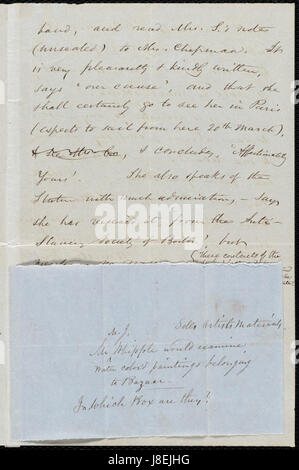 hand, and read Mrs. S.'s note
(unsealed) to Mrs. Chapman. It
is very pleasantly & kindly written,
says "our cause", and that she
shall certainly go to see her in Paris
(expects to sail from here 20th March),
& concludes, "Affectionately
Yours'. She also speaks of the
with much admiration, – says
she has it from the Anti-
Slavery Society of Boston! but
contents of the
Sells artists materials.
Mr Whipple would examine
Water color paintings belonging
to Bazaar.
In which Box are they?
alamy
J8EJHG